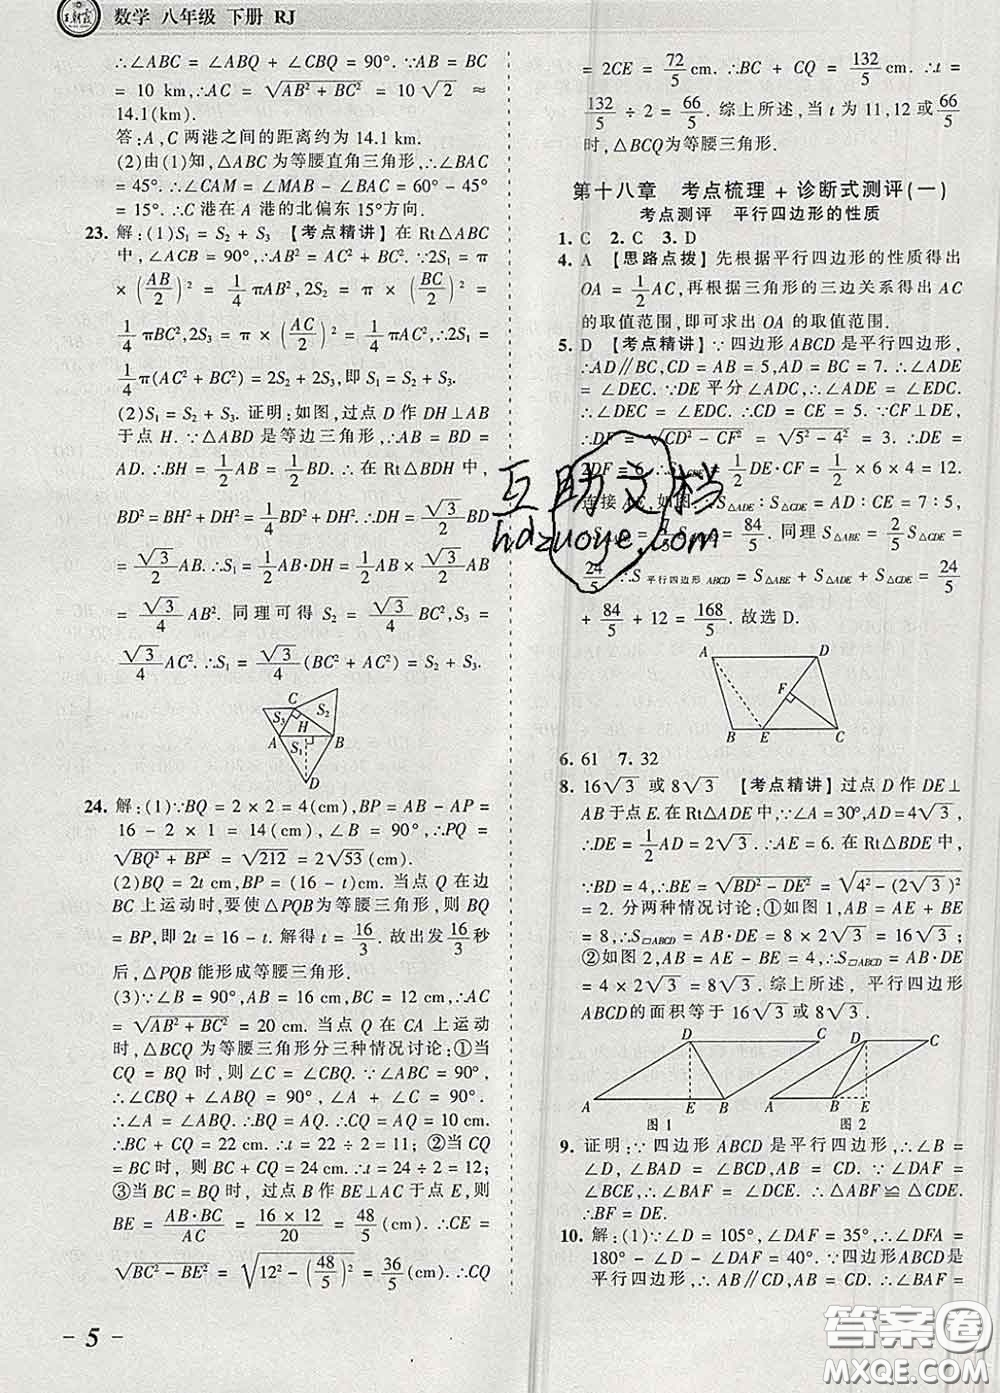 王朝霞 数学 八年级 下册 RJ
∴∠ABC = ∠ABQ + ∠CBQ = 90°. ∵AB = BC
= 10 km, ∴AC = √(AB² + BC²) = 10√2 ≈
14.1(km).
答:A,C 两港之间的距离约为 14.1 km.
(2)由(1)知,△ABC 为等腰直角三角形,∴∠BAC
= 45°. ∴∠CAM = ∠MAB - ∠BAC = 60° - 45°
= 15°. ∴C 港在 A 港的北偏东 15°方向.
23. 解:(1)S₁ = S₂ + S₃ 【考点精讲】在 Rt△ABC
中,∠ACB = 90°, ∴AB² = AC² + BC². ∵2S₁ = π
× (AB/2)² = 1/4 πAB², 2S₂ = π × (BC/2)² =
1/4 πBC², 2S₃ = π × (AC/2)² = 1/4 πAC², ∴2S₁ =
1/4 π(AC² + BC²) = 2S₂ + 2S₃, 即 S₁ = S₂ + S₃.
(2)S₁ = S₂ + S₃. 证明:如图,过点 D 作 DH⊥AB
于点 H. ∵△ABD 是等边三角形, ∴AB = BD =
AD. ∴BH = 1/2 AB = 1/2 BD. 在 Rt△BDH 中,
BD² = BH² + DH² = 1/4 BD² + DH². ∴DH = √3/2 BD =
√3/2 AB. ∴S₁ = 1/2 AB·DH = 1/2 AB × √3/2 AB =
√3/4 AB². 同理可得 S₂ = √3/4 BC², S₃ =
√3/4 AC². ∴S₁ = √3/4 (BC² + AC²) = S₂ + S₃.
C S₂ S₃ H A S₁ B D
24. 解:(1)∵BQ = 2 × 2 = 4(cm), BP = AB - AP =
16 - 2 × 1 = 14(cm), ∠B = 90°, ∴PQ =
√(BQ² + BP²) = √212 = 2√53(cm).
(2)BQ = 2t cm, BP = (16 - t)cm. 当点 Q 在边
BC 上运动时,要使△PQB为等腰三角形,则 BQ
= BP, 即 2t = 16 - t. 解得 t = 16/3. 故出发 16/3 秒
后,△PQB 能形成等腰三角形.
(3)∵∠B = 90°, AB = 16 cm, BC = 12 cm, ∴AC
= √(AB² + BC²) = 20 cm. 当点 Q 在 CA 上运动
时,△BCQ 为等腰三角形分三种情况讨论:①当
CQ = BQ 时,则∠C = ∠CBQ. ∵∠ABC = 90°,
∴∠CBQ + ∠ABQ = 90°, ∠A + ∠C = 90°.
∴∠A = ∠ABQ. ∴BQ = AQ. ∴CQ = AQ = 10 cm.
∴BC + CQ = 22 cm. ∴t = 22 ÷ 2 = 11; ②当 CQ
= BC 时, 则 BC + CQ = 24 cm. ∴t = 24 ÷ 2 = 12;
③当 BC = BQ 时, 过点 B 作 BE⊥AC 于点 E, 则
BE = AB·BC/AC = 12 × 16/20 = 48/5 (cm). ∴CE =
√(BC² - BE²) = √(12² - (48/5)²) = 36/5 (cm). ∴CQ
- 5 -
= 2CE = 72/5 cm. ∴BC + CQ = 132/5 cm. ∴t =
132/5 ÷ 2 = 66/5. 综上所述,当 t 为 11,12 或 66/5
时,△BCQ为等腰三角形.
第十八章 考点梳理 + 诊断式测评(一)
考点测评 平行四边形的性质
1. C 2. C 3. D
4. A 【思路点拨】先根据平行四边形的性质得出
OA = 1/2 AC, 再根据三角形的三边关系得出 AC
的取值范围,即可求出 OA 的取值范围.
5. D 【考点精讲】∵四边形 ABCD 是平行四边形,
∴AD∥BC, CD = AB = 5, AD = BC = 7. ∴∠ADE
= ∠DEC. ∵DE 平分∠ADC, ∴∠ADE = ∠EDC.
∴∠DEC = ∠EDC. ∴CD = CE = 5. ∵CF⊥DE,
∴DF = √(CD² - CF²) = √(5² - 4²) = 3. ∴DE =
2DF = 6. ∴S△CDE = 1/2 DE·CF = 1/2 × 6 × 4 = 12.
连接 AE. 如图. S△ADE : S△CDE = AD : CE = 7 : 5,
S△CDE = 84/5. 同理 S△ABE = 2/5 S△CDE =
24/5. ∴S平行四边形 ABCD = S△ABE + S△ADE + S△CDE = 24/5
+ 84/5 + 12 = 168/5. 故选 D.
A D F B E C
6. 61 7. 32
8. 16√3 或 8√3 【考点精讲】过点 D 作 DE⊥
AB 于点 E. 在 Rt△ADE 中, ∵∠A = 30°, AD = 4√3,
∴DE = 1/2 AD = 2√3, AE = 6. 在 Rt△BDE 中,
∵BD = 4, ∴BE = √(BD² - DE²) = √(4² - (2√3)²)
= 2. 分两种情况讨论:①如图 1, AB = AE + BE
= 8, ∴S▱ABCD = AB·DE = 8 × 2√3 = 16√3;
②如图 2, AB = AE - BE = 4, ∴S▱ABCD = AB·DE
= 4 × 2√3 = 8√3. 综上所述, 平行四边形
ABCD 的面积等于 16√3 或 8√3.
D C A E B 图 1
D C A B E 图 2
9. 证明: ∵四边形 ABCD 是平行四边形, ∴∠B =
∠D, ∠BAD = ∠BCD, AB = CD. ∵∠DAF =
∠BCE, ∴∠BAF = ∠DCE. ∴△ABF≌△CDE.
∴BF = DE.
10. 解:(1)∵∠D = 105°, ∠DAF = 35°, ∴∠DFA =
180° - ∠D - ∠DAF = 40°. ∵四边形ABCD是
平行四边形, ∴AB∥CD, AB = CD. ∴∠BAF =
互助文档
hdzuoye.com
答案圈
MXQE.COM